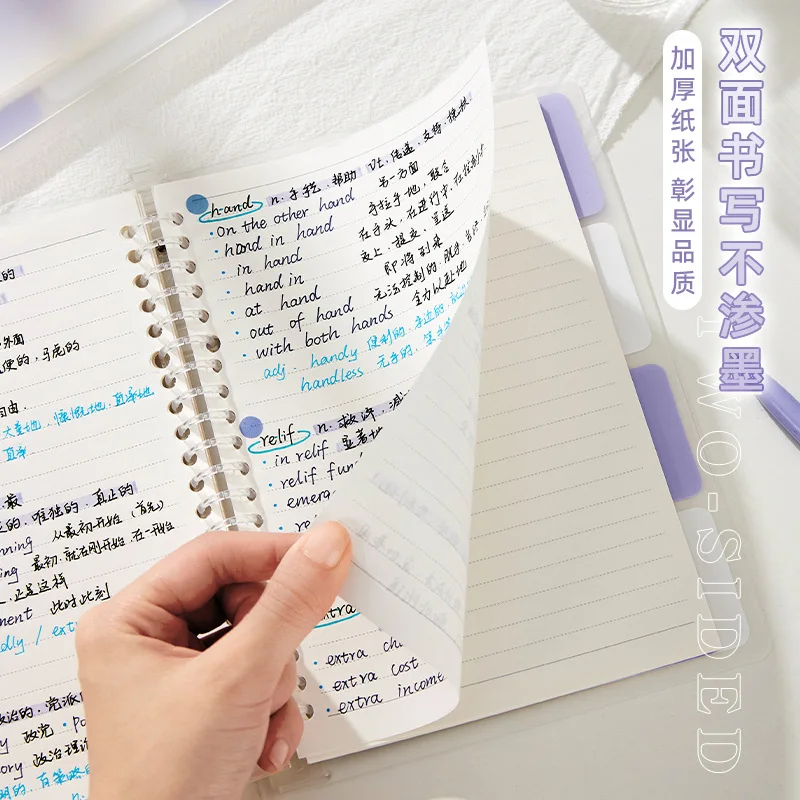 双面书写不渗墨
加厚纸张 彰显品质
TWO-SIDED
hand n. 手, 帮助 vt. 传递, 支持, 搀扶
on the other hand 另一方面
hand in hand 手拉手地, 联合
in hand 在手头, 在进行中, 在控制中
hand in 交上, 提交, 呈送
at hand 即将到来
out of hand 无法控制的, 脱手
with both hands 全力以赴地
adj. handy 便利的, 手边的
handless 无手的, 笨手
relif n. 救济
in relif 显著地
relif
extra
extra cost
extra income
外面
便的, 马虎的
自由
大量地, 慷慨地, 直率地
直率
最
的, 唯独的, 真正的
nning 从最初开始 (首先)
ning 最初, 就在刚开始, 在一开始
正是这样
ment 此时此刻
dly / extr
政治的, 党派
政党
ory 政治理论